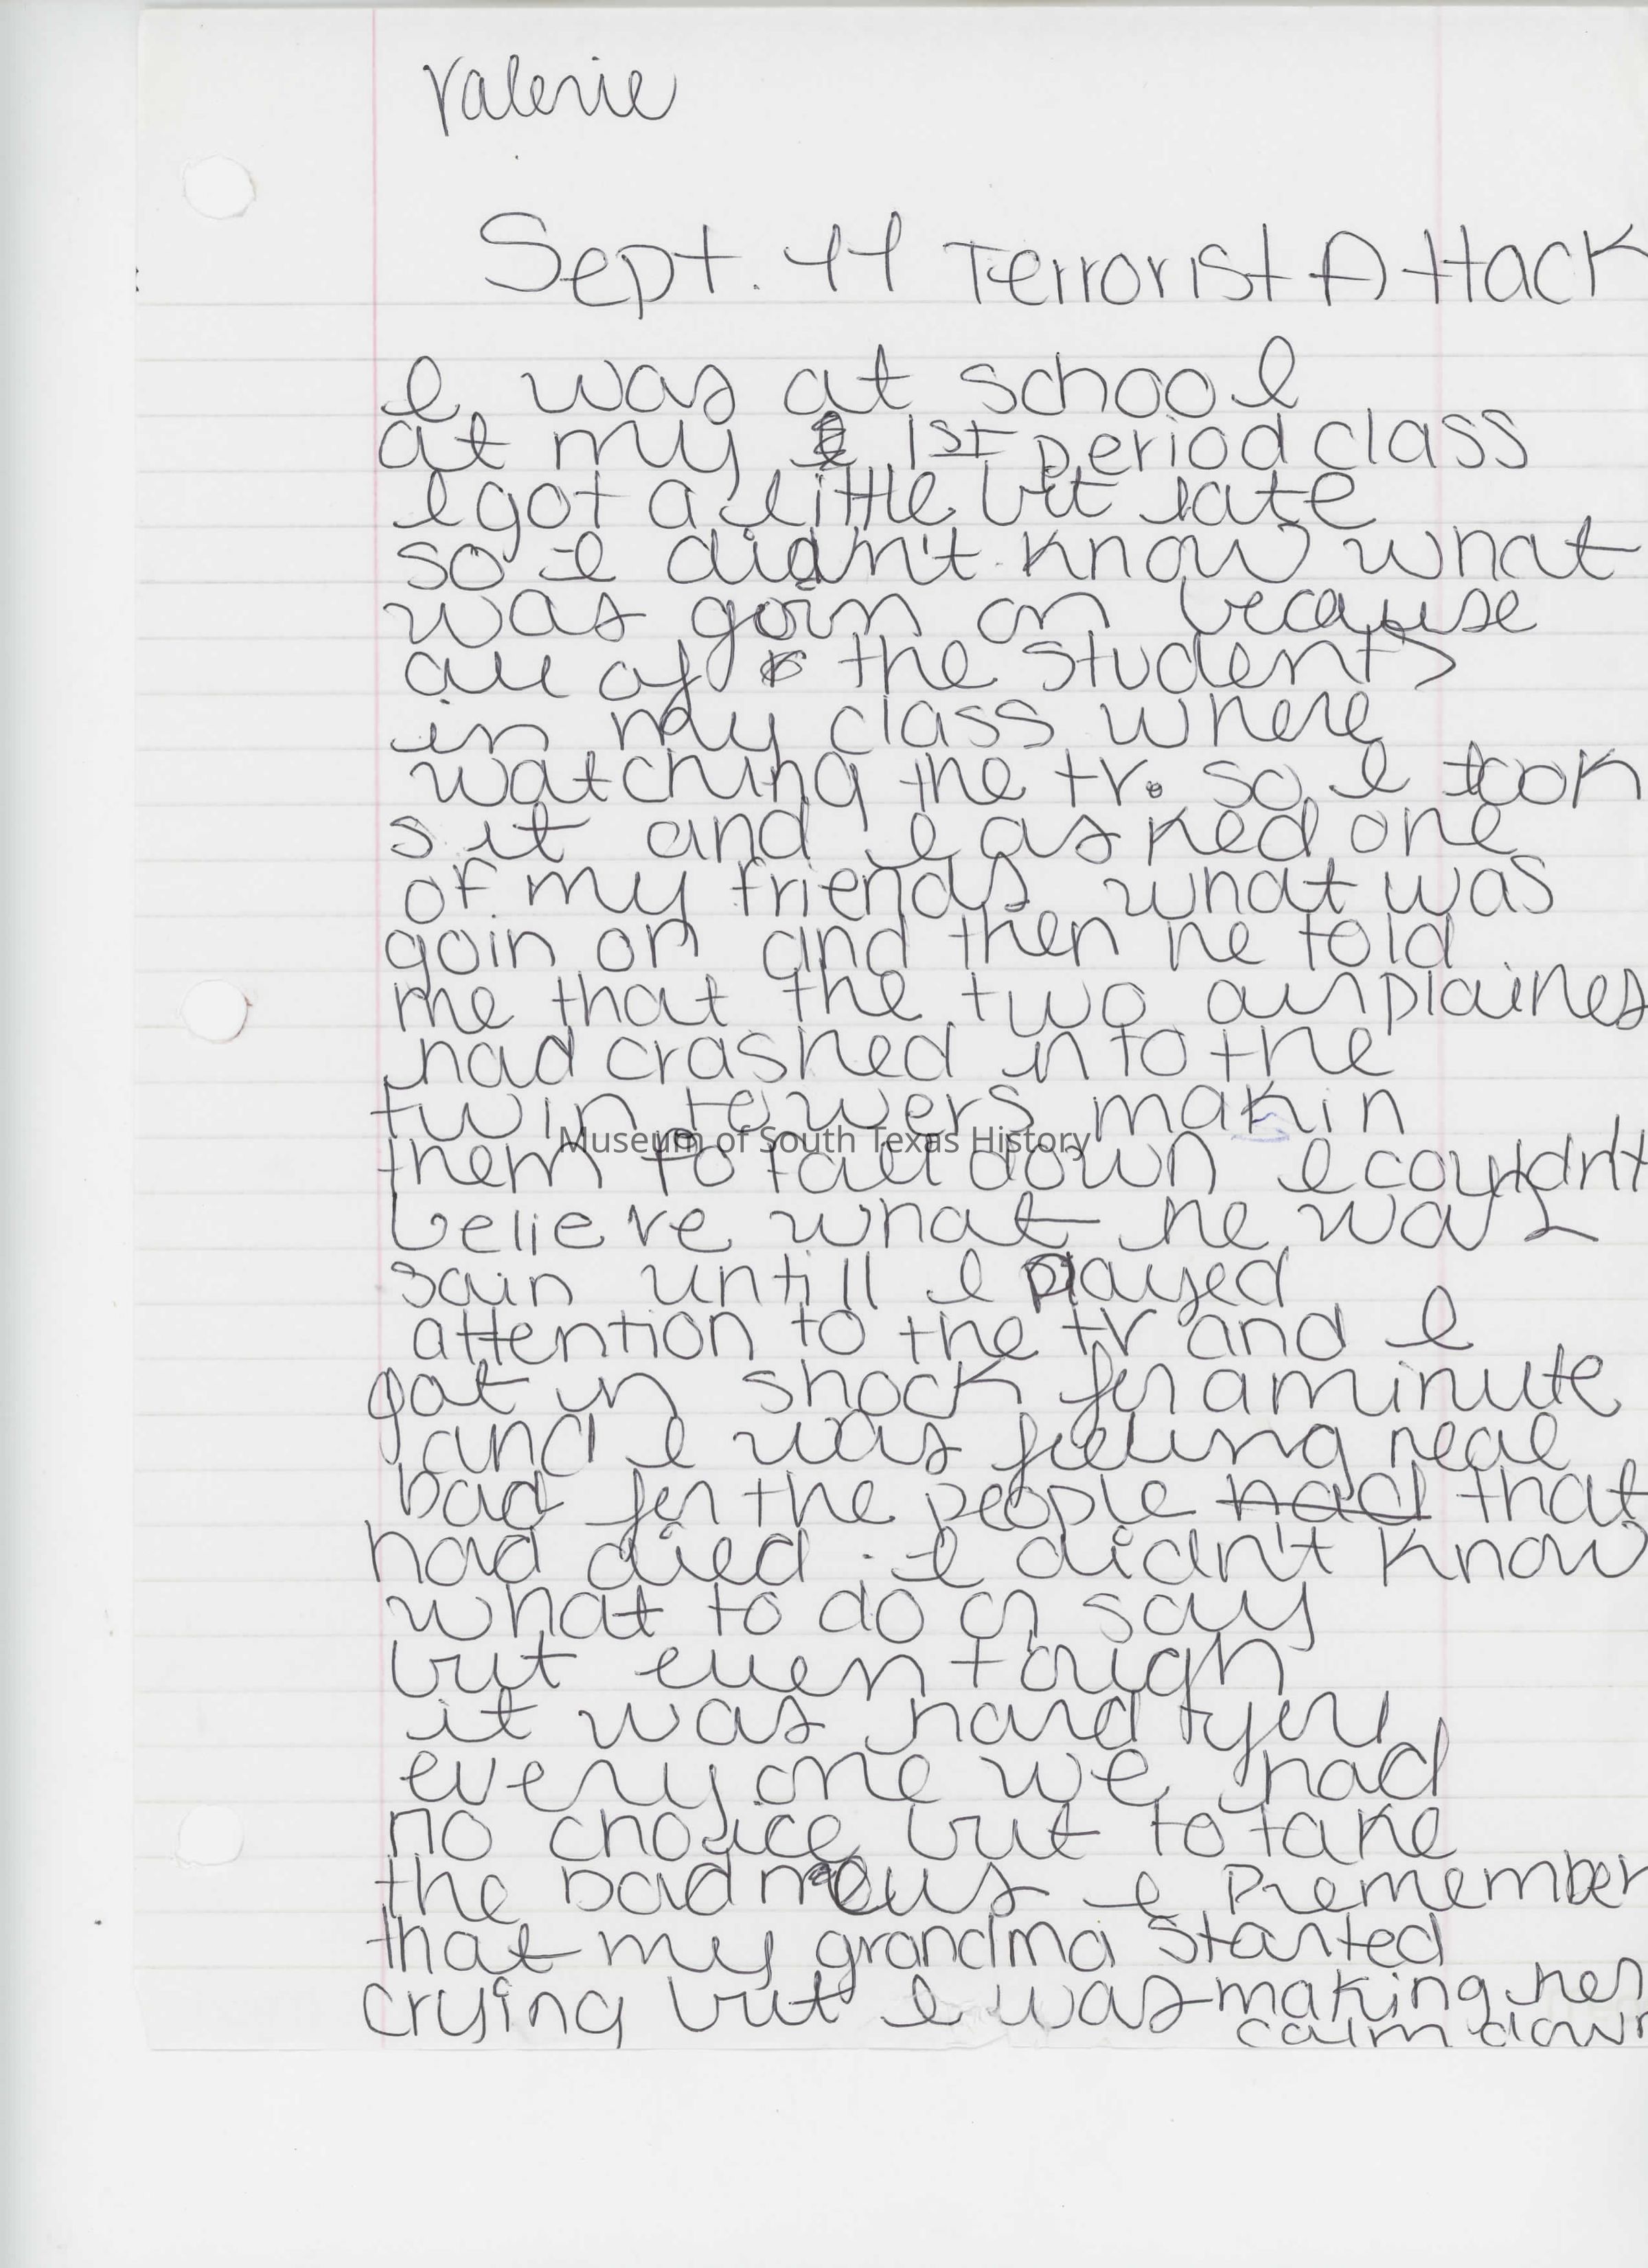 Valerie
Sept. 11 Terrorist Attack
I was at school
at my 1st period class
I got a little bit late
so I didn't know what
was goin on because
all of the students
in my class where
watching the tv. so I took
sit and I asked one
of my friends what was
goin on and then he told
me that the two airplaines
had crashed into the
twin towers makin
Museum of South Texas History
them to fall down I couldn't
believe what he was
sain untill I played
attention to the tv and I
got in shock for a minute
and I was feeling real
bad for the people had that
had died. I didn't know
what to do or say
but even tough
it was hard for
everyone we had
no choice but to take
the bad news I remember
that my grandma started
crying but I was making her
calm down